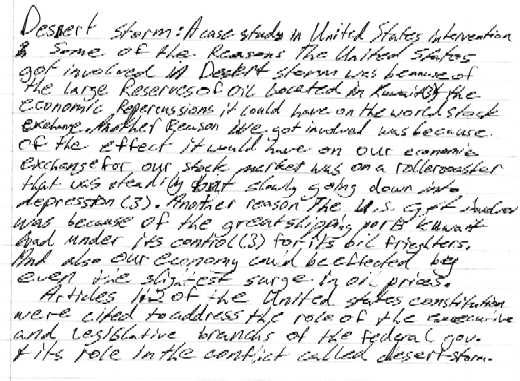 Dessert storm: A case study in United States Intervention
Some of the Reasons The United States
got involved in Desert storm was because of
the large Reserves of oil located in Kuwait(3) the
economic Repercussions it could have on the world stock
exchange. Another Reason we got involved was because
of the effect it would have on our economic
exchange for our stock market was on a rollercoaster
that was steadily but slowly going down into
depression (3). Another reason The U.S. got involved
was because of the great shipping ports Kuwait
had under its control (3) for its oil frighters.
And also our economy could be effected by
even the slightest surge in oil prices.
Articles 1,2 of the United states constitution
were cited to address the role of the executive
and Legislative branchs of the federal gov.
& its role in the conflict called desert storm.